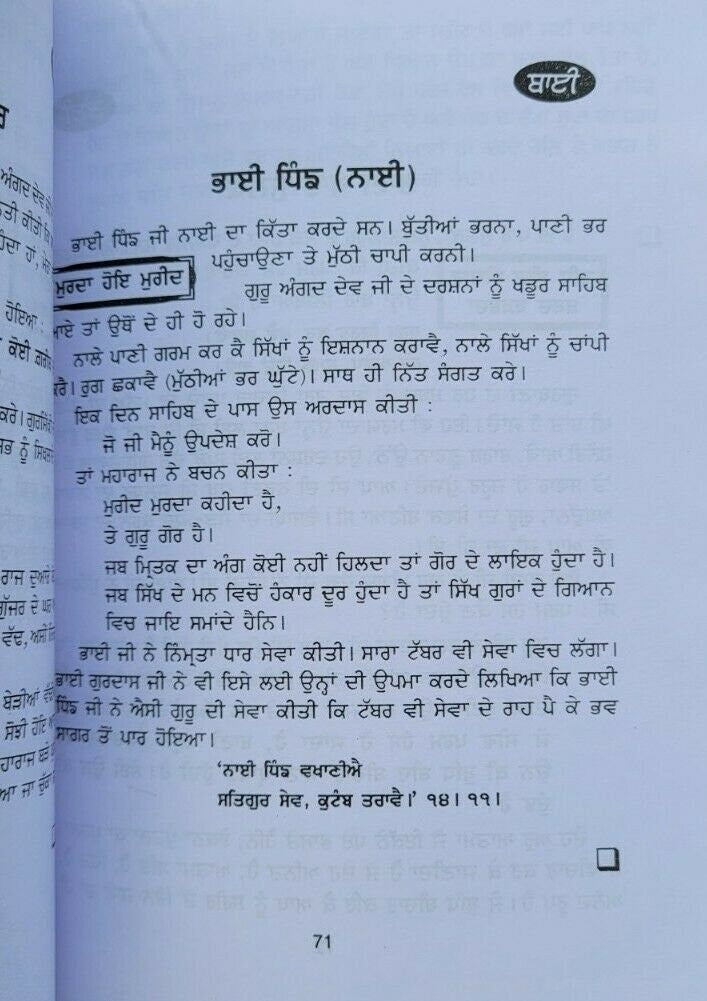 ਬਾਈ
ਭਾਈ ਧਿੰਙ (ਨਾਈ)
ਭਾਈ ਧਿੰਙ ਜੀ ਨਾਈ ਦਾ ਕਿੱਤਾ ਕਰਦੇ ਸਨ। ਬੁੱਤੀਆਂ ਭਰਨਾ, ਪਾਣੀ ਭਰ
ਪਹੁੰਚਾਉਣਾ ਤੇ ਮੁੱਠੀ ਚਾਪੀ ਕਰਨੀ।
ਮੁਰਦਾ ਹੋਇ ਮੁਰੀਦ
ਗੁਰੂ ਅੰਗਦ ਦੇਵ ਜੀ ਦੇ ਦਰਸ਼ਨਾਂ ਨੂੰ ਖਡੂਰ ਸਾਹਿਬ
ਆਏ ਤਾਂ ਉਥੋਂ ਦੇ ਹੀ ਹੋ ਰਹੇ।
ਨਾਲੇ ਪਾਣੀ ਗਰਮ ਕਰ ਕੈ ਸਿੱਖਾਂ ਨੂੰ ਇਸ਼ਨਾਨ ਕਰਾਵੈ, ਨਾਲੇ ਸਿੱਖਾਂ ਨੂੰ ਚਾਂਪੀ
ਕਰੈ। ਰੁਗ ਛਕਾਵੈ (ਮੁੱਠੀਆਂ ਭਰ ਘੁੱਟੇ)। ਸਾਥ ਹੀ ਨਿੱਤ ਸੰਗਤ ਕਰੇ।
ਇਕ ਦਿਨ ਸਾਹਿਬ ਦੇ ਪਾਸ ਉਸ ਅਰਦਾਸ ਕੀਤੀ :
ਜੋ ਜੀ ਮੈਨੂੰ ਉਪਦੇਸ਼ ਕਰੋ।
ਤਾਂ ਮਹਾਰਾਜ ਨੇ ਬਚਨ ਕੀਤਾ :
ਮੁਰੀਦ ਮੁਰਦਾ ਕਹੀਦਾ ਹੈ,
ਤੇ ਗੁਰੂ ਗੋਰ ਹੈ।
ਜਬ ਮ੍ਰਿਤਕ ਦਾ ਅੰਗ ਕੋਈ ਨਹੀਂ ਹਿਲਦਾ ਤਾਂ ਗੋਰ ਦੇ ਲਾਇਕ ਹੁੰਦਾ ਹੈ।
ਜਬ ਸਿੱਖ ਦੇ ਮਨ ਵਿਚੋਂ ਹੰਕਾਰ ਦੂਰ ਹੁੰਦਾ ਹੈ ਤਾਂ ਸਿੱਖ ਗੁਰਾਂ ਦੇ ਗਿਆਨ
ਵਿਚ ਜਾਇ ਸਮਾਂਦੇ ਹੈਨਿ।
ਭਾਈ ਜੀ ਨੇ ਨਿੰਮ੍ਰਤਾ ਧਾਰ ਸੇਵਾ ਕੀਤੀ। ਸਾਰਾ ਟੱਬਰ ਵੀ ਸੇਵਾ ਵਿਚ ਲੱਗਾ।
ਭਾਈ ਗੁਰਦਾਸ ਜੀ ਨੇ ਵੀ ਇਸੇ ਲਈ ਉਨ੍ਹਾਂ ਦੀ ਉਪਮਾ ਕਰਦੇ ਲਿਖਿਆ ਕਿ ਭਾਈ
ਧਿੰਙ ਜੀ ਨੇ ਐਸੀ ਗੁਰੂ ਦੀ ਸੇਵਾ ਕੀਤੀ ਕਿ ਟੱਬਰ ਵੀ ਸੇਵਾ ਦੇ ਰਾਹ ਪੈ ਕੇ ਭਵ
ਸਾਗਰ ਤੋਂ ਪਾਰ ਹੋਇਆ।
'ਨਾਈ ਧਿੰਙ ਵਖਾਣੀਐ
ਸਤਿਗੁਰ ਸੇਵ, ਕੁਟੰਬ ਤਰਾਵੈ।' ੧੪।੧੧।
71